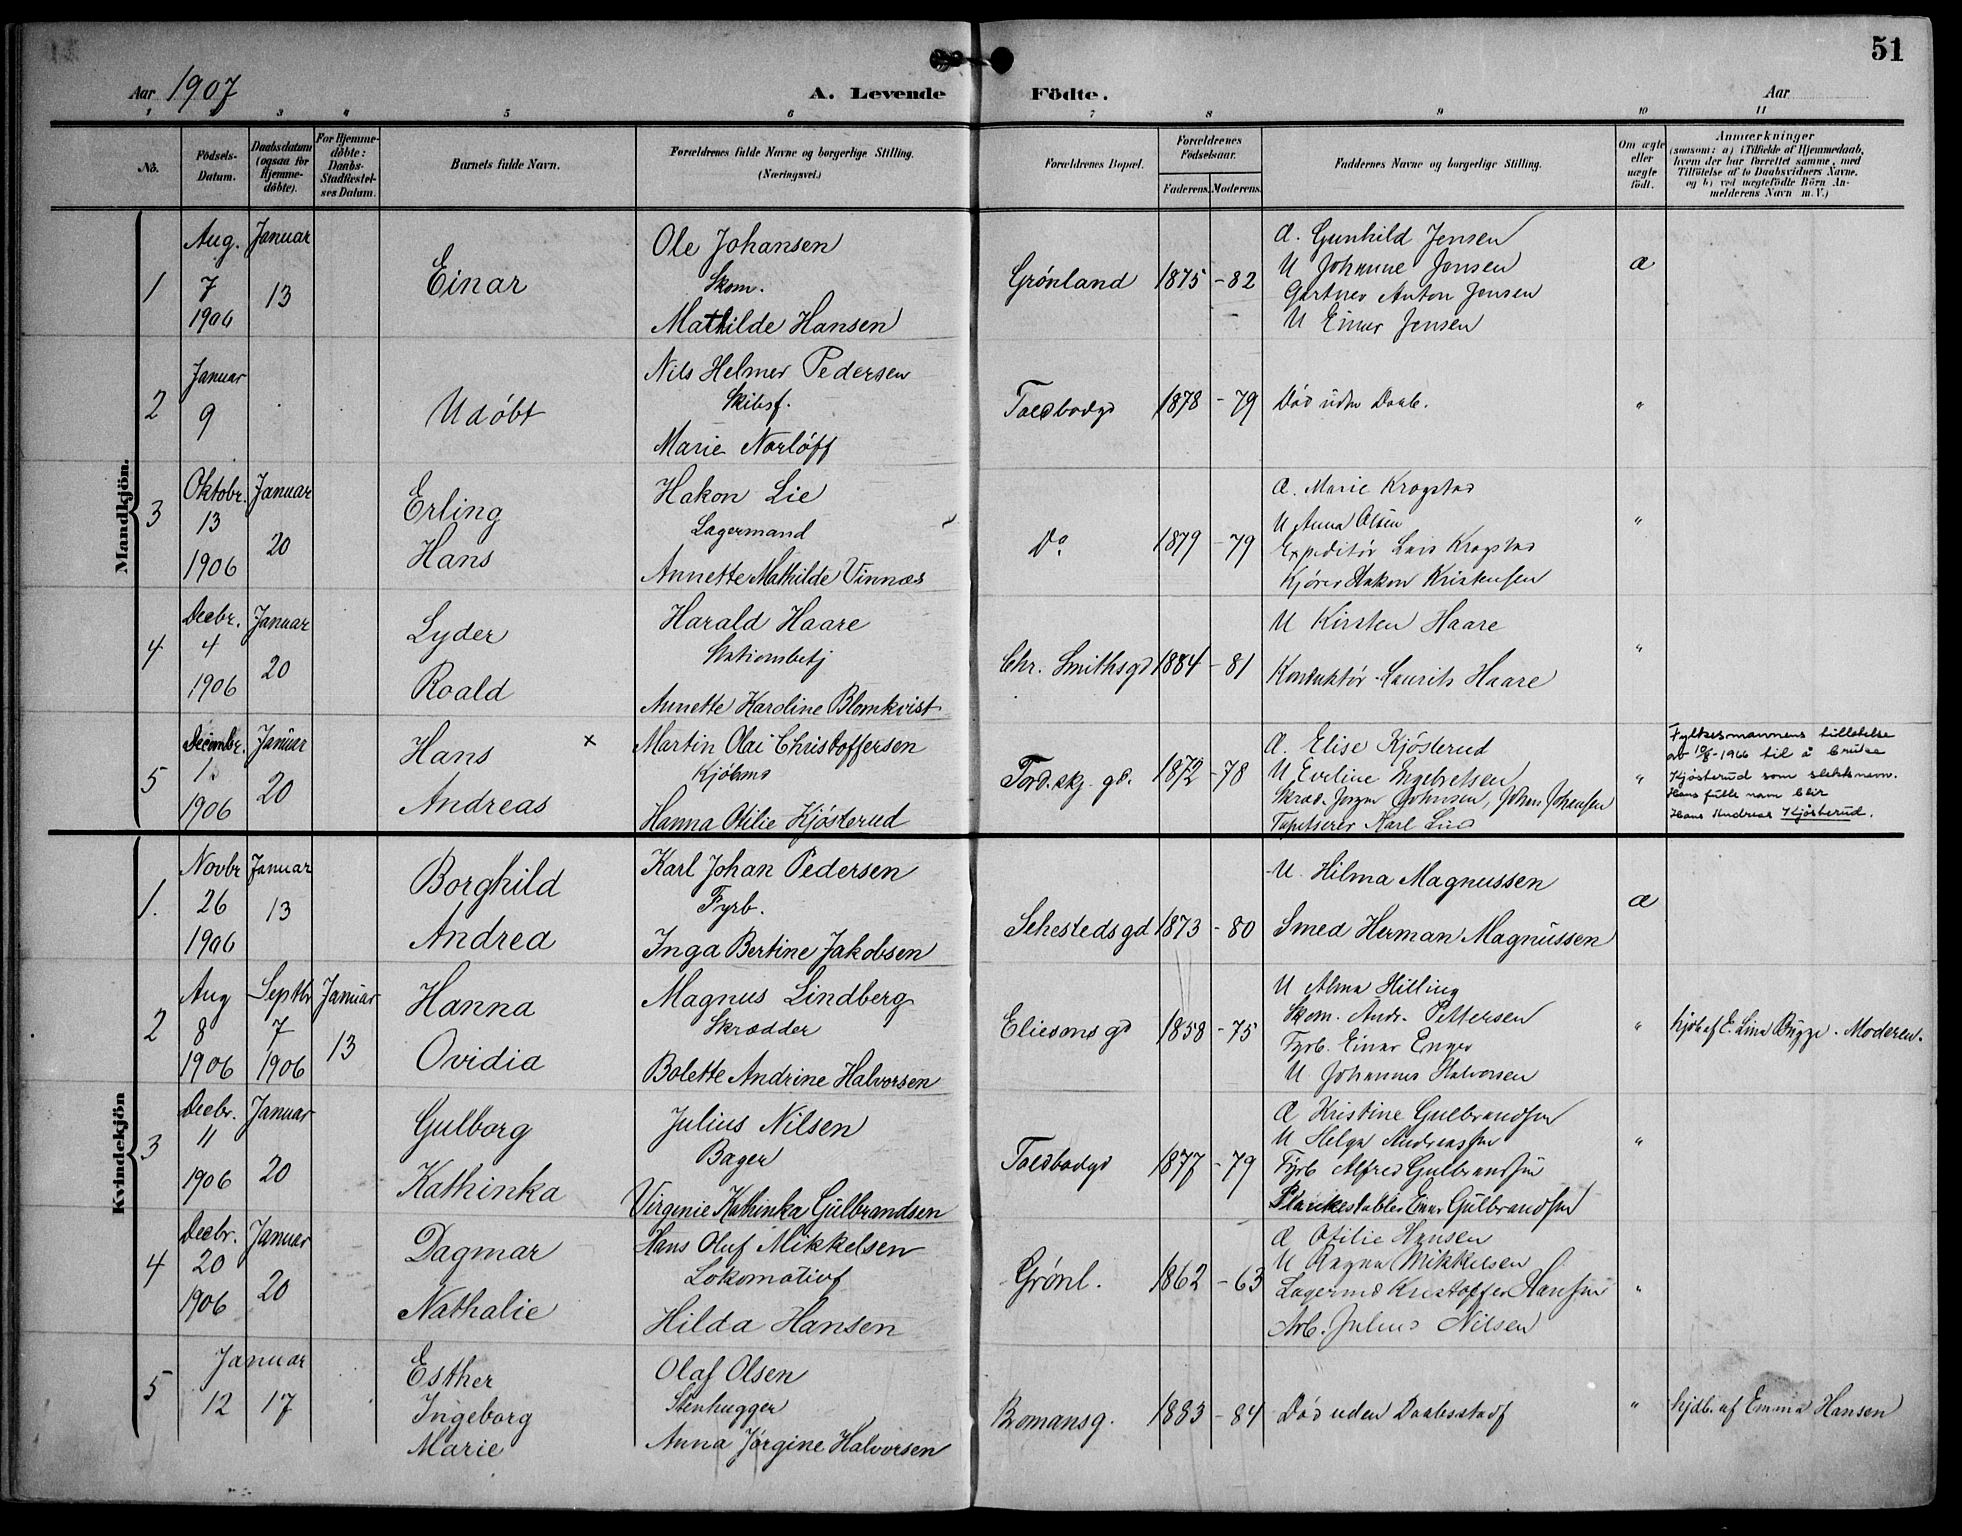 51
Aar 1907
A. Levende Födte.
Aar
1 2 3 4 5 6 7 8 9 10 11
No.
Födsels-Datum.
Daabsdatum (ogsaa for Hjemmedöbte).
For Hjemmedöbte: Daabs-Stadfæstelses Datum.
Barnets fulde Navn.
Forældrenes fulde Navne og borgerlige Stilling.
(Næringsvei.)
Forældrenes Bopæl.
Forældrenes Födselsaar.
Faderens. Moderens.
Faddernes Navne og borgerlige Stilling.
Om ægte eller uægte födt.
Anmærkninger
(saasom: a) i Tilfælde af Hjemmedaab, hvem der har forrettet samme, med Tilföielse af to Daabsvidners Navne, og b) ved uægtefödte Börn Anmelderens Navn m. V.)
Mandkjön.
1 Aug. 7 1906 Januar 13 Einar
Ole Johansen
Skom.
Mathilde Hansen
Grönland 1875 - 82
Æ. Gunhild Jensen
U Johanne Jensen
Gartner Anton Jensen
U Einar Jensen
Æ
2 Januar 9 Udøbt
Nils Helmer Pedersen
Skibsf.
Marie Norløff
Toldbodgd 1878 - 79
Død uden Daab.
"
3 Oktobr. 13 1906 Januar 20 Erling Hans
Hakon Lie
Lagermand
Annette Mathilde Vinnæs
Do 1879 - 79
Æ. Marie Krogstad
U Anna Olsen
Expeditør Lars Krogstad
Kjører Hakon Kristensen
"
4 Decbr. 4 1906 Januar 20 Lyder Roald
Harald Haare
Stationsbetj
Annette Karoline Blomkvist
Chr. Smithsgd 1884 - 81
U Kirsten Haare
Konduktør Laurits Haare
"
5 Decembr. 1. 1906 Januar 20 Hans Andreas ×
Martin Olai Christoffersen
Kjøbmd
Hanna Otilie Kjösterud
Tord.skj. gd. 1872 - 78
Æ. Elise Kjösterud
U Eveline Ingebretsen
Skræd. Jørgen Johnsen, Johan Johansen
Tapetserer Karl Lind
"
Fylkesmannens tillatelse
av 10/8-1966 til å bruke
Kjösterud som slektsnavn.
Hans fulle navn blir
Hans Andreas Kjösterud.
Kvindekjön
1. Novbr 26 1906 Januar 13 Borghild Andrea
Karl Johan Pedersen
Fyrb.
Inga Bertine Jakobsen
Sehestedsgd 1873 - 80
U. Hilma Magnussen
Smed Herman Magnussen
Æ
2 Aug 8 1906 Septbr 7 1906 Januar 13 Hanna Ovidia
Magnus Lindberg
Skrædder
Bolette Andrine Halvorsen
Eliesonsgd 1858 - 75
U Alma Hilling
Skom. Andr. Pettersen
Fyrb. Einar Enger
U Johannes Halvorsen
"
hjdb af E. Lina Bugge. Moderen.
3 Decbr. 11 1906 Januar 20 Gulborg Kathinka
Julius Nilsen
Bager
Virginie Kathinka Gulbrandsen
Toldbodgd 1877 - 79
Æ Kristine Gulbrandsen
U Helga Andreassen
Fyrb Alfred Gulbrandsen
Plankestabler Einar Gulbrandsen
"
4 Decbr. 20 1906 Januar 20 Dagmar Nathalie
Hans Oluf Mikkelsen
Lokomotivf
Hilda Hansen
Grönl. 1862 - 63
Æ Otilie Hansen
U Ragna Mikkelsen
Lagermd Kristoffer Hansen
Arb. Julius Nilsen
"
5 Januar 12 17 Esther Ingeborg Marie
Olaf Olsen
Stenhugger
Anna Jørgine Halvorsen
Bomansg. 1883 - 84
Død uden Daabsstadf
"
hjdb. af Emma Hansen